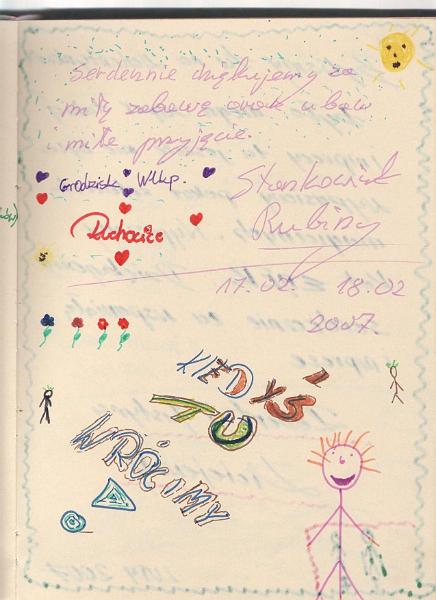 Serdecznie dziękujemy za
miłą zabawę oraz ubaw
i miłe przyjęcie.
Grodzisk Wlkp.
Puchacice
17.02. - 18.02
2007.
KIEDYŚ
TU
WRÓCIMY